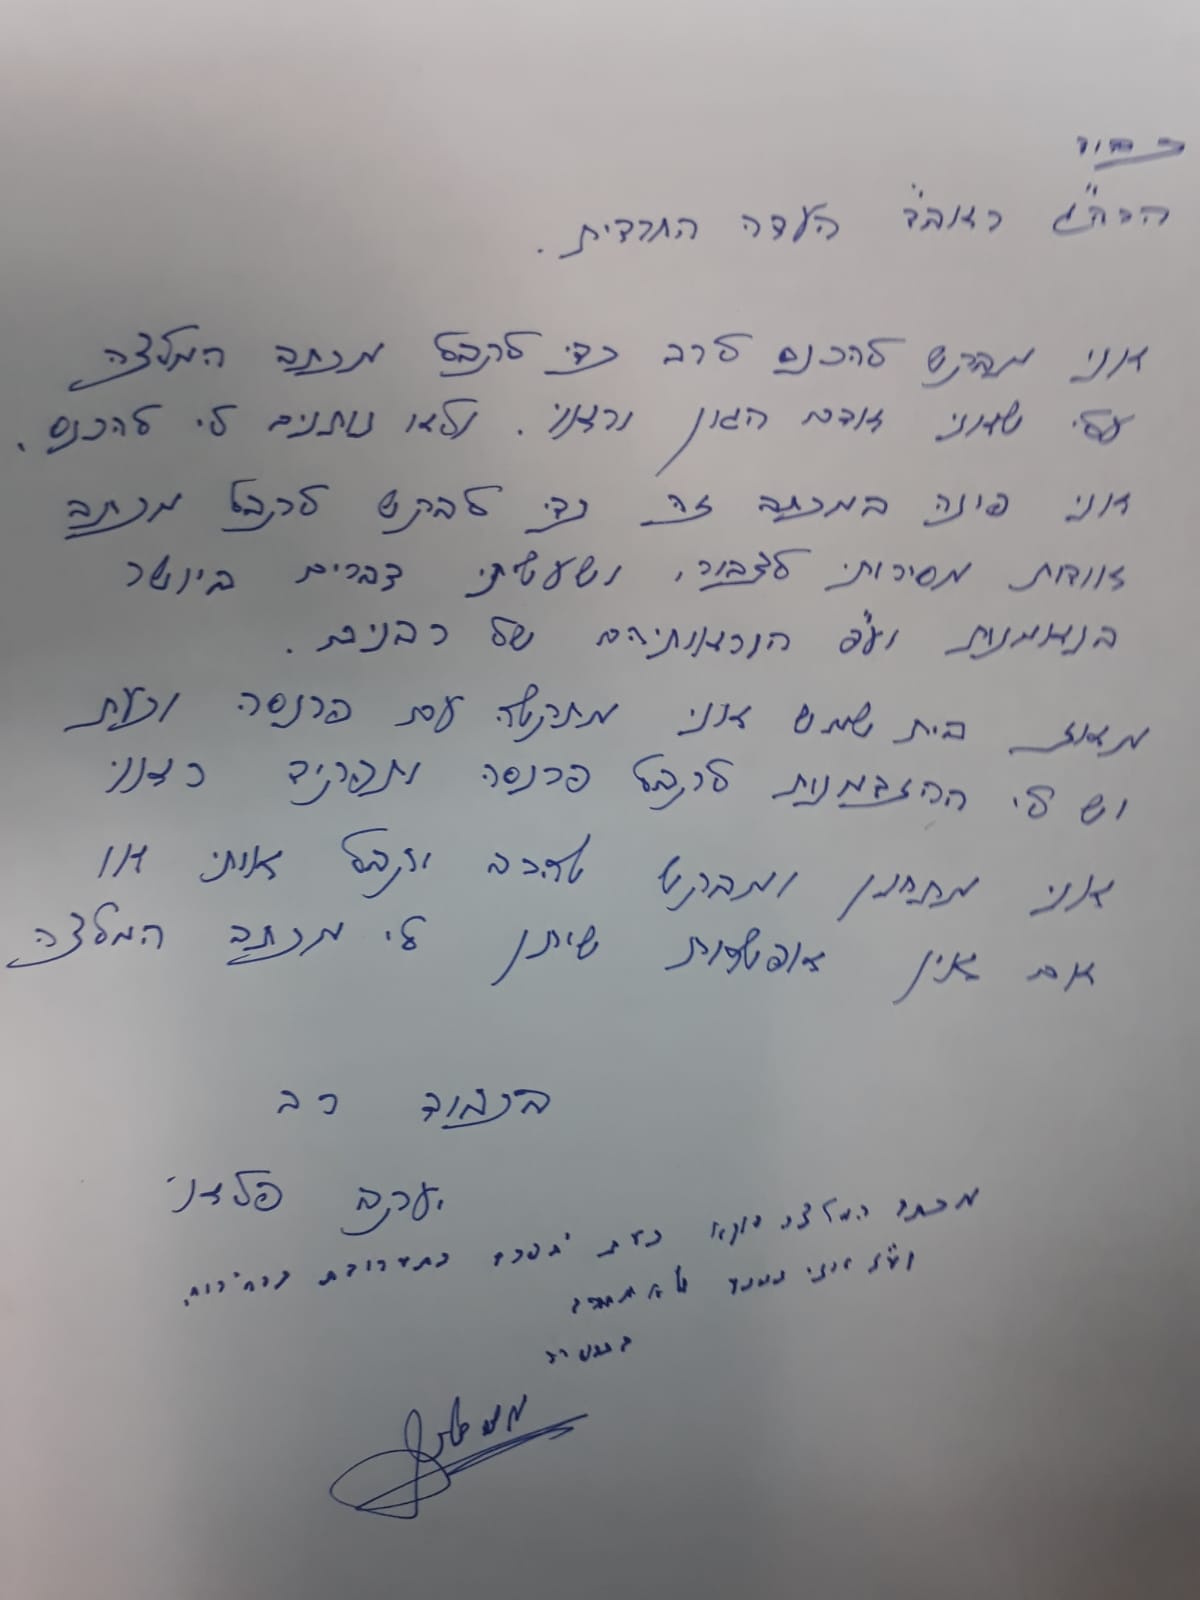 כבוד
הרה"ג ראב"ד העדה החרדית.
אני מבקש להכנס לרב כדי לקבל מכתב המלצה
עלי שאני אדם הגון וראוי. ולא נותנים לי להכנס.
אני פונה במכתב זה כדי לבקש לקבל מכתב
אודות מסירותי לציבור, ושעשיתי דברים ביושר
בנאמנות וע"פ הוראותיהם של רבנים.
מאז בית שמש אני מתקשה עם פרנסה וכעת
יש לי הזדמנות לקבל פרנסה ותפקיד ראוי
אני מתחנן ומבקש שהרב יקבל אותי או
אם אין אפשרות שיתן לי מכתב המלצה
בכבוד רב
יעקב פלאי
מכתב המלצה דוקא כעת יתפרש כתערובת בבחירות,